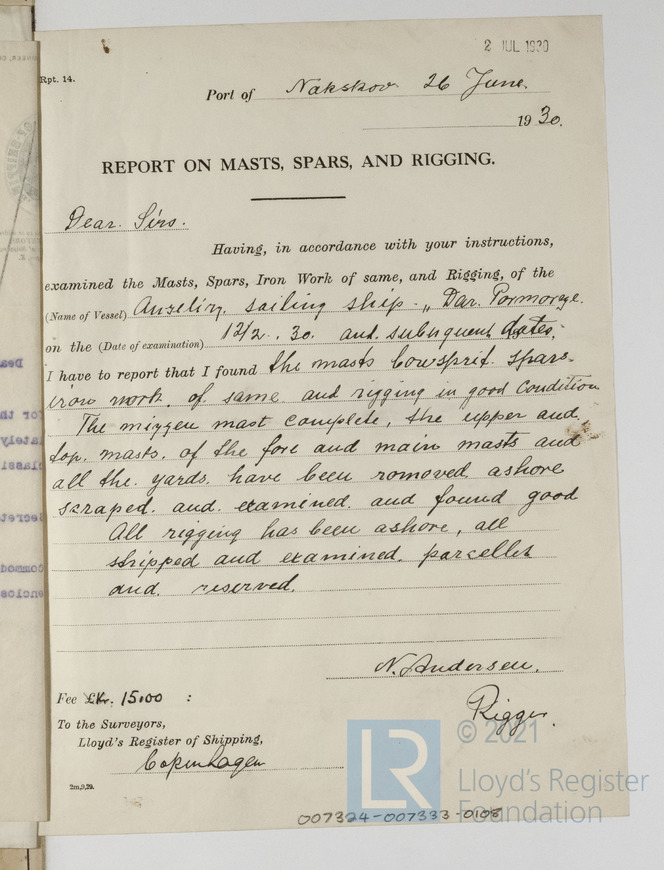 2 JUL 1930
Rpt. 14.
Port of Nakskov 26 June.
1930.
REPORT ON MASTS, SPARS, AND RIGGING.
Dear. Sirs.
Having, in accordance with your instructions,
examined the Masts, Spars, Iron Work of same, and Rigging, of the
(Name of Vessel) sailing ship "Dar. Pormorze.
on the (Date of examination) 12/2. 30. and. subsequent dates;
I have to report that I found the masts bowsprit. spars.
iron work. of same. and rigging in good condition
The mizzen mast complete, the upper and
top. masts. of the fore and main masts and
all the. yards. have been romoved. ashore
scraped. and. examined. and found good
All rigging has been ashore, all
stripped and examined. parcelled
and. reserved.
N. Andersen.
Rigger.
Fee £Kr. 15.00 :
To the Surveyors,
Lloyd's Register of Shipping,
Copenhagen
2m,9,29.
LR
© 2021
Lloyd's Register
Foundation
007324-007333-0108